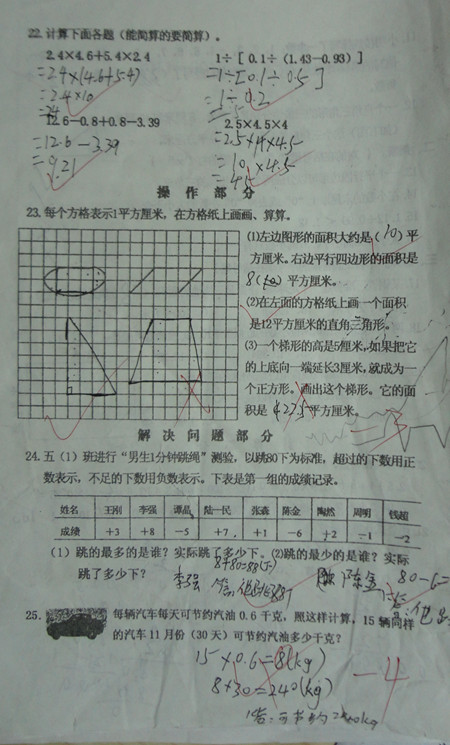 22.计算下面各题（能简算的要简算）。
2.4×4.6+5.4×2.4 1÷[0.1÷(1.43−0.93)]
=2.4×(4.6+5.4) =1÷[0.1÷0.5]
=2.4×10 =1÷0.2
=24 =5
12.6−0.8+0.8−3.39 2.5×4.5×4
=12.6−3.39 =2.5×4×4.5
=9.21 =10×4.5
=45
操作部分
23.每个方格表示1平方厘米，在方格纸上画画、算算。
(1)左边图形的面积大约是(10)平
方厘米。右边平行四边形的面积是
8( )平方厘米。
(2)在左面的方格纸上画一个面积
是12平方厘米的直角三角形。
(3)一个梯形的高是5厘米，如果把它
的上底向一端延长3厘米，就成为一
个正方形。画出这个梯形。它的面
积是( )平方厘米。
解决问题部分
24.五（1）班进行“男生1分钟跳绳”测验，以跳80下为标准，超过的下数用正
数表示，不足的下数用负数表示。下表是第一组的成绩记录。
姓名 王刚 李强 谭磊 陆一民 张森 陈金 陶然 周明 钱超
成绩 +3 +8 −5 +7 +1 −6 +2 −1 −2
(1) 跳的最多的是谁？实际跳了多少下。(2)跳的最少的是谁？实际
跳了多少下？
8+80=88(下)
李强
陈金
25.
每辆汽车每天可节约汽油0.6千克，照这样计算，15辆同样
的汽车11月份（30天）可节约汽油多少千克？
15×0.6=8(kg)
8×30=240(kg)
−4
答:可节约240kg